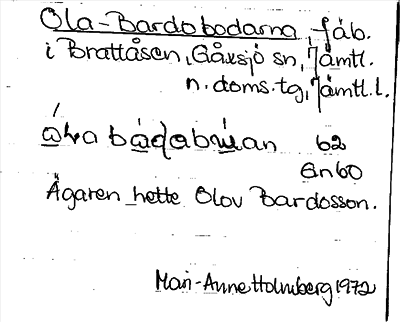 Ola-Bardobodarna, fäb.
i Brattåsen, Gåxsjö sn, Jämtl.
n. doms. tg, Jämtl. l.
62
En60
Ägaren hette Olov Bardosson.
Mari-Anne Holmberg 1972